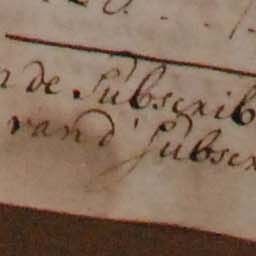 n de Subscrib
rand Subscr